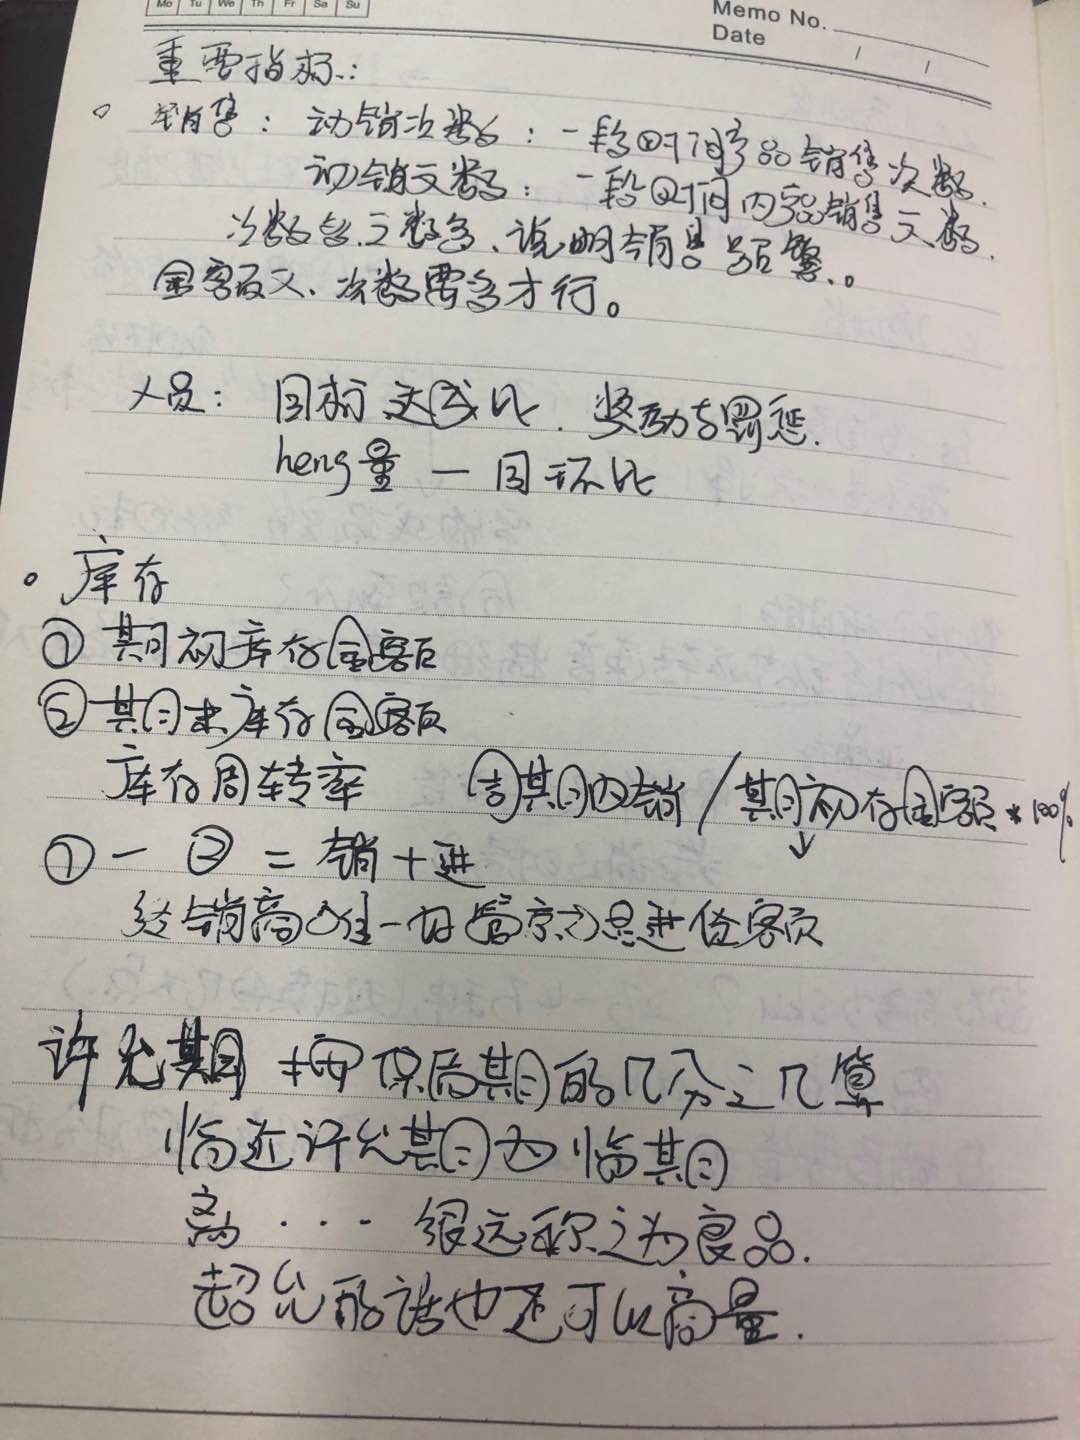 Mo Tu We Th Fr Sa Su
Memo No.
Date / /
重要指标:
销售: 动销次数: 一段时间产品销售次数.
动销天数: 一段时间内产品销售天数.
次数多.天数多、说明销售频繁.。
金额反之、次数要多才行。
人员: 目标达成比. 奖励与罚惩.
heng量 — 同环比
库存
① 期初库存金额
② 期末库存金额
库存周转率 周期内销/期初存金额*100%
↓
① — ② = 销+进
经销商 一般 进 额
许允期 按保质期的几分之几算
临近许允期为临期
离 ... 很远称之为良品.
超允的话也还可以商量.